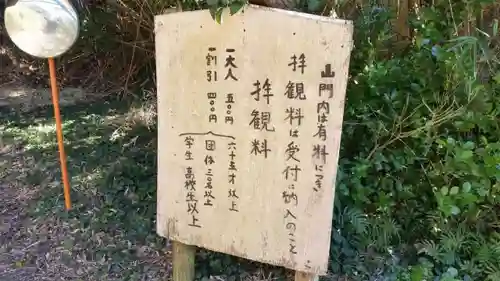 山門内は有料につき
拝観料は受付に納入のこと
拝観料
一大人 五〇〇円
一割引 四〇〇円
六十五才以上
団体 三〇名以上
学生 高校生以上